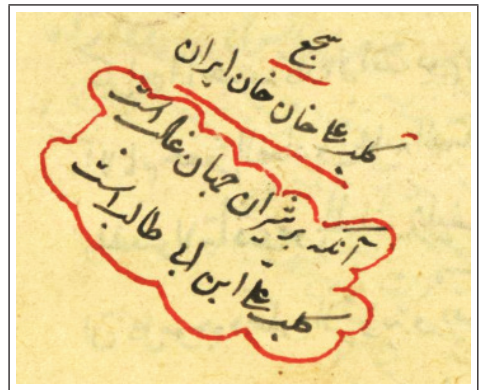 سجع
کلبعلی خان خان ایران
آنکه بر شیران جهان غالب است
کلب علی ابن ابی طالب است